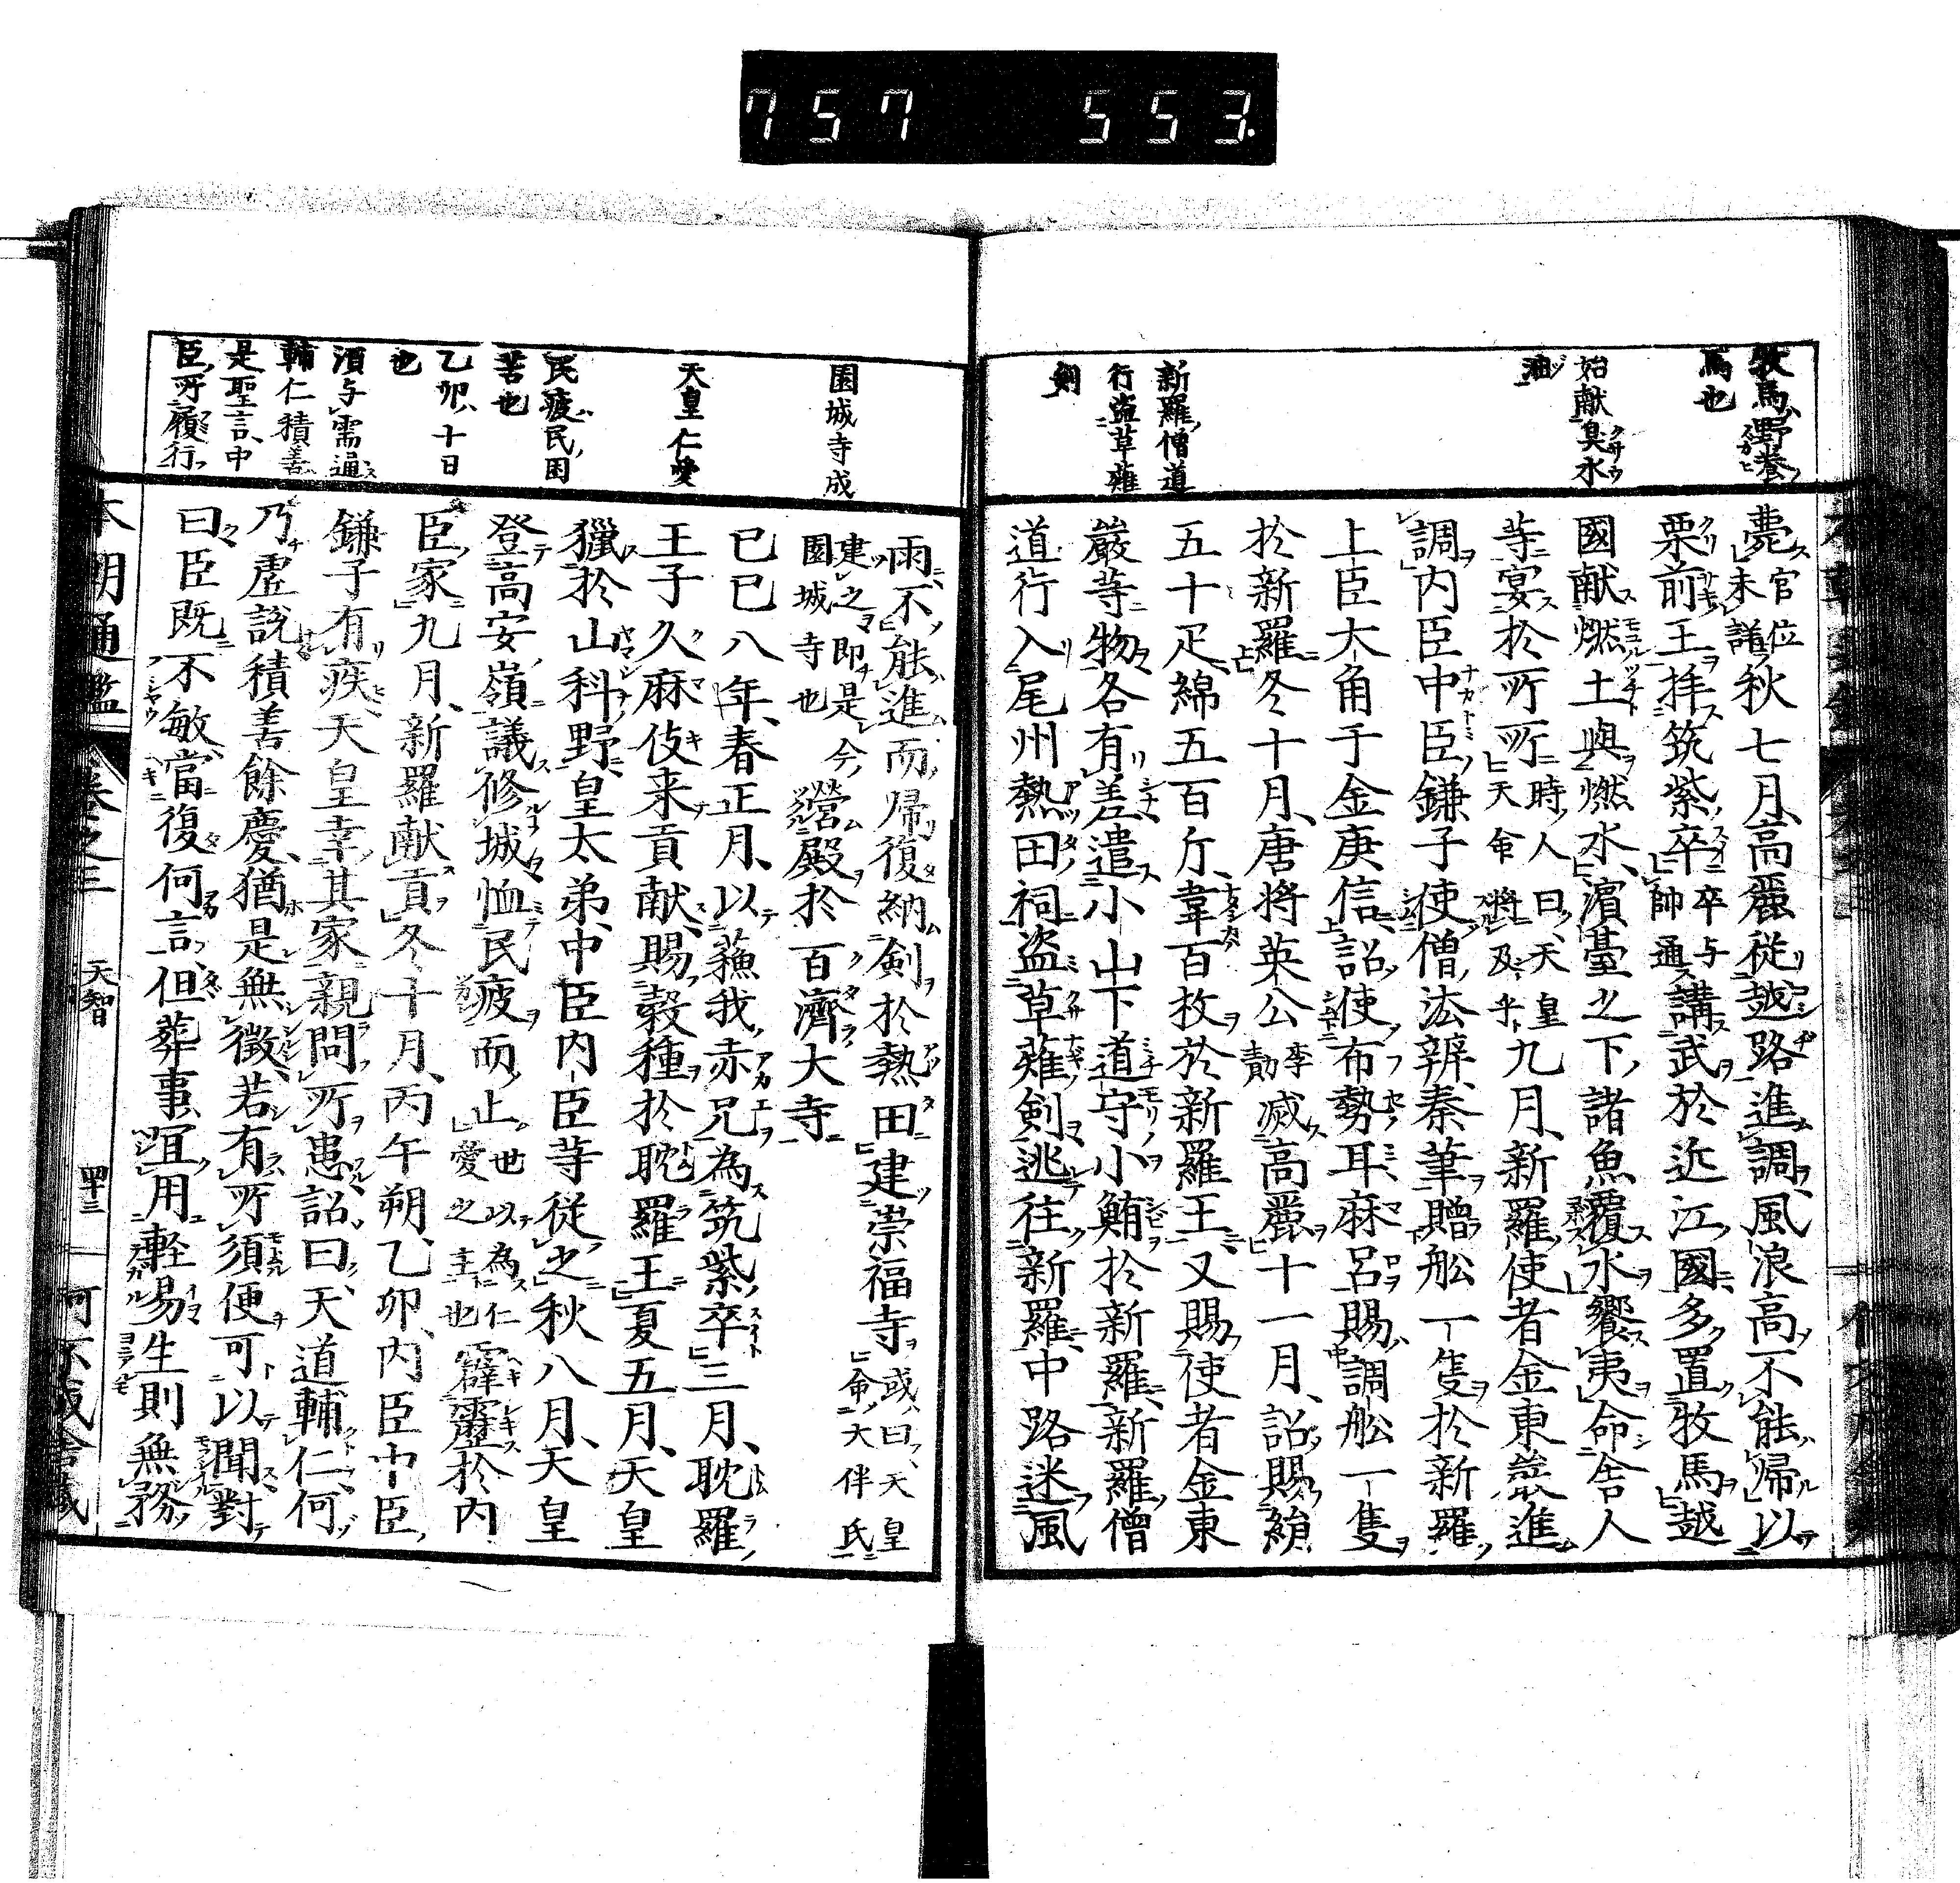 757 553.
牧馬、野養
馬也
始献臭水
油
新羅僧道
行盗草薙
剣
薨官位未詳秋七月、高麗従越路進調、風浪高不能帰以
栗前王拝筑紫卒卒与帥通講武於近江國多置牧馬越
國献燃土與燃水、濱臺之下、諸魚覆水饗夷命舎人
等宴於所所時人曰、天皇天命将及乎九月、新羅使者金東嚴進
調内臣中臣鎌子使僧法辨秦筆贈舩一隻於新羅
上臣大角于金庾信、詔使布勢耳麻呂賜調舩一隻
於新羅冬十月、唐将英公李勣滅高麗十一月、詔賜絹
五十疋、綿五百斤、韋百枚於新羅王、又賜使者金東
嚴等物各有差遣小山下道守小鮪於新羅、新羅僧
道行入尾州熱田祠盗草薙剣逃往新羅中路迷風
園城寺成
天皇仁愛
民疲民、困
苦也
乙卯、十日
也
須与需通
輔仁積善
是聖言、中
臣所履行
雨不能進而帰復納剣於熱田建崇福寺或曰、天皇命大伴氏
建之即是今園城寺也營殿於百濟大寺
己巳八年、春正月、以蘓我赤兄為筑紫卒三月、耽羅
王子久麻伎来貢献、賜穀種於耽羅王夏五月、天皇
獵於山科野、皇太弟、中臣内臣等従之秋八月、天皇
登高安嶺議修城恤民疲而止世以為仁愛之主也霹靂於内
臣家九月、新羅献貢冬十月、丙午朔、乙卯、内臣中臣
鎌子有疾、天皇幸其家親問所患詔曰、天道輔仁、何
乃虚説積善餘慶、猶是無徴、若有所須便可以聞對
曰臣既不敏當復何言、但葬事冝用軽易生則無務
本朝通鑑 巻之三 天智 四十三